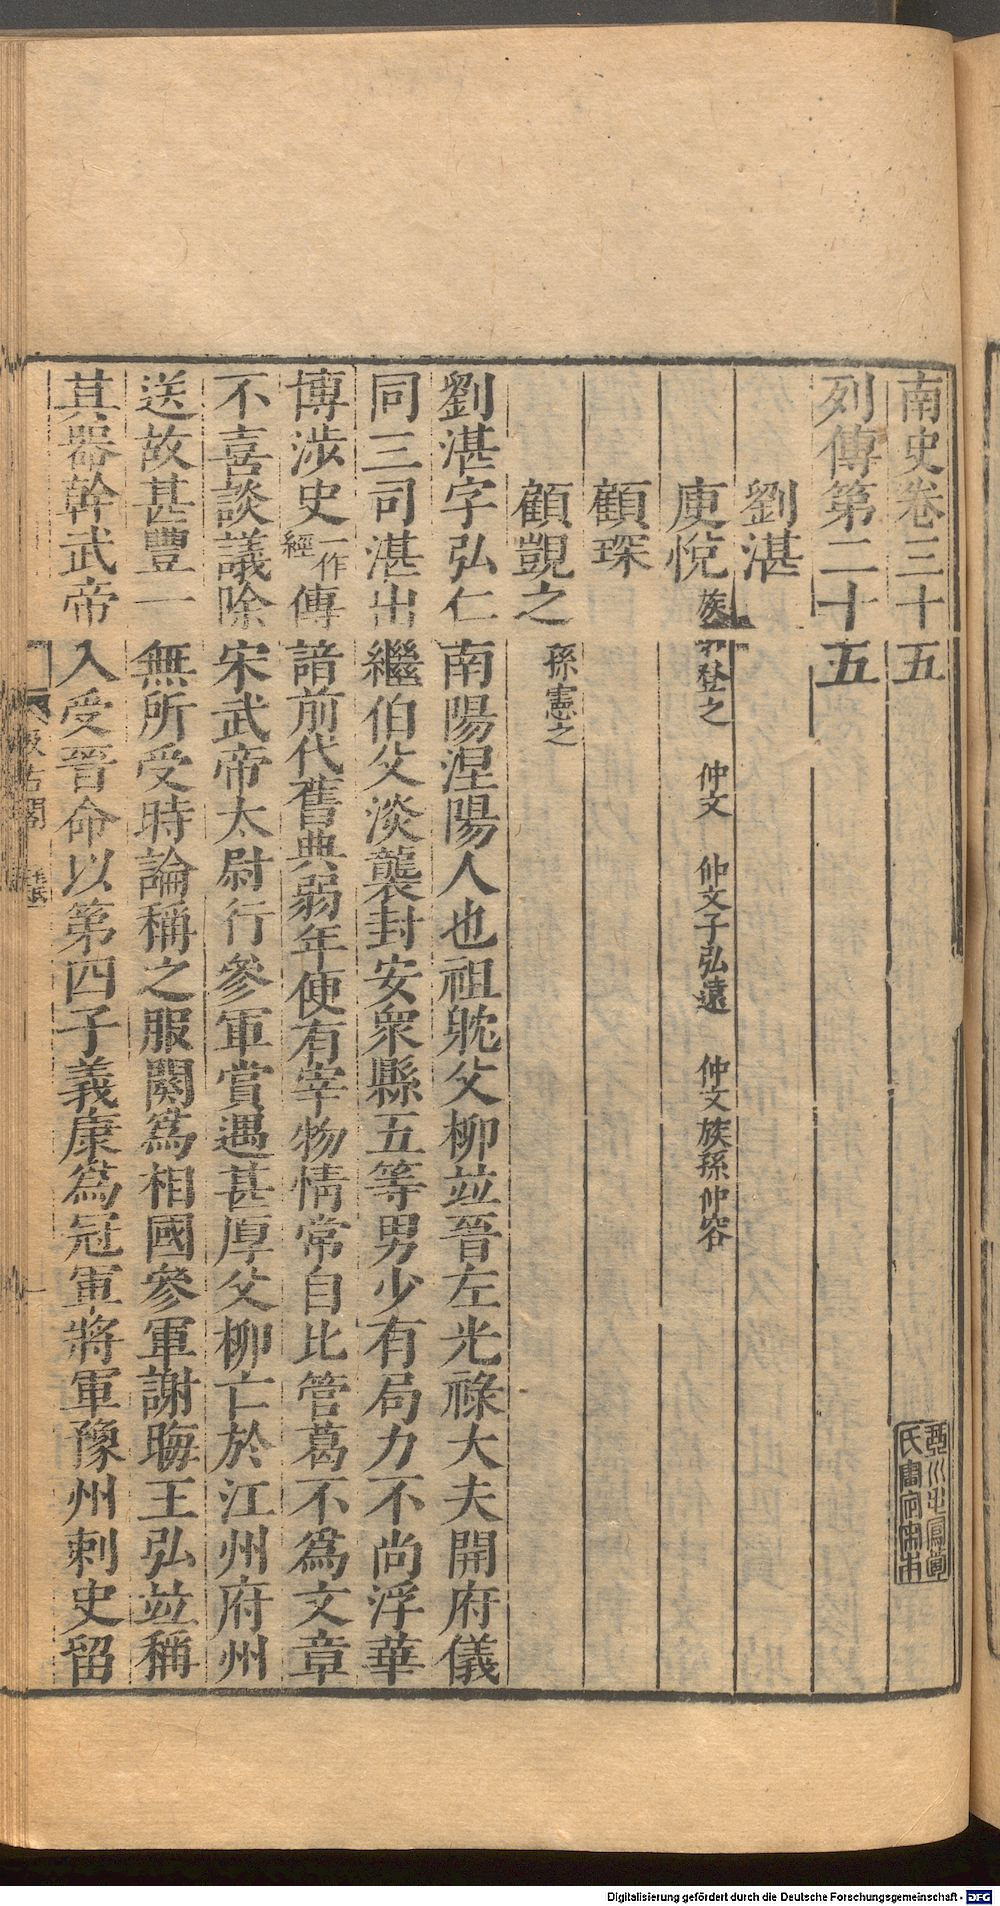 南史卷三十五
列傳第二十五
劉湛
庾悅 族弟登之 仲文 仲文子弘遠 仲文族孫仲容
顧琛
顧覬之 孫憲之
劉湛字弘仁南陽涅陽人也祖躭父柳竝晉左光祿大夫開府儀
同三司湛出繼伯父淡襲封安衆縣五等男少有局力不尚浮華
博涉史一作經傳諳前代舊典弱年便有宰物情常自比管葛不爲文章
不喜談議除宋武帝太尉行參軍賞遇甚厚父柳亡於江州府州
送故甚豐一無所受時論稱之服闋爲相國參軍謝晦王弘竝稱
其器幹武帝入受晉命以第四子義康爲冠軍將軍豫州刺史留
汲古閣
Digitalisierung gefördert durch die Deutsche Forschungsgemeinschaft - DFG